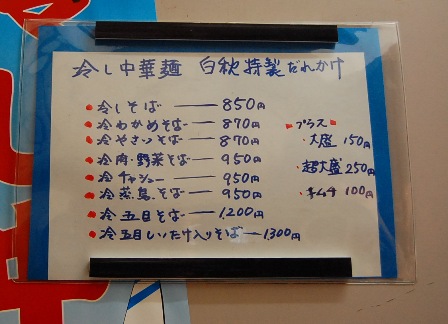 冷し中華麺 白秋特製だれかけ
冷しそば 850円
冷わかめそば 870円
冷やさいそば 870円
冷肉・野菜そば 950円
冷チャシュー 950円
冷蒸鳥そば 950円
冷五目そば 1,200円
冷五目しいたけ入りそば 1300円
プラス
・大盛 150円
・超大盛 250円
・キムチ 100円